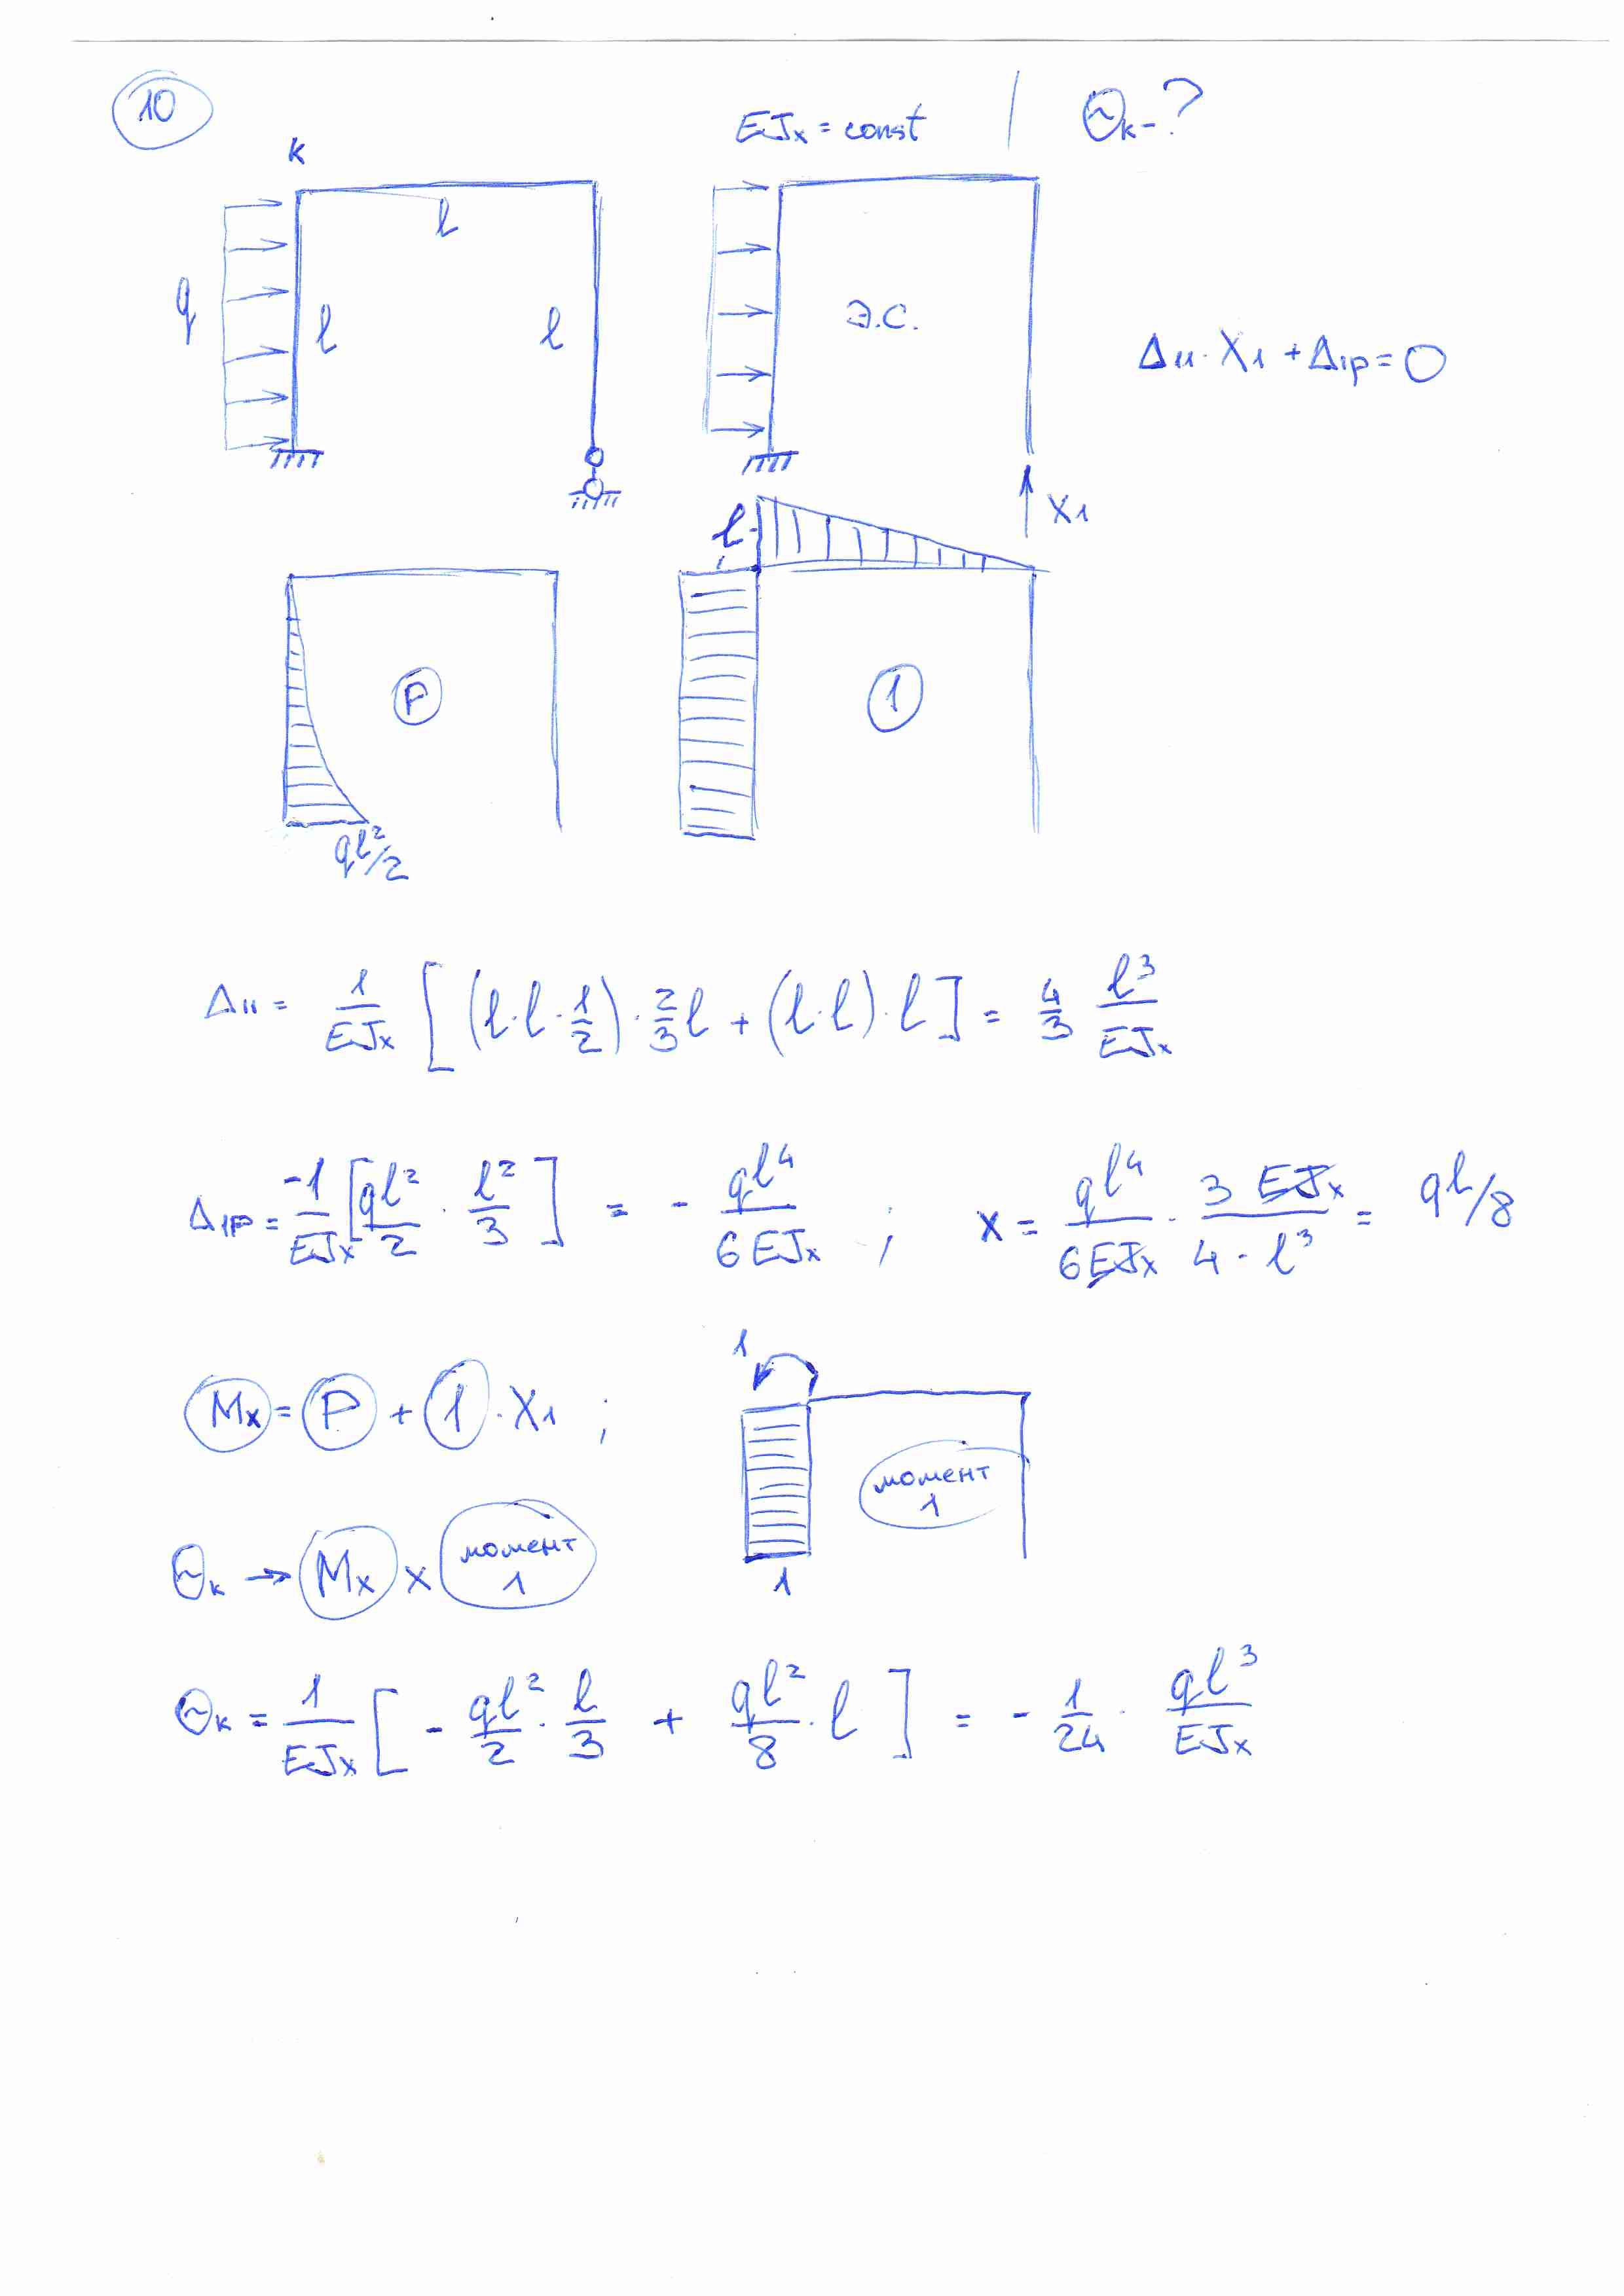 10
EJx = const | Θк - ?
к
l
q
l
l
Э.С.
Δ11 · X1 + Δ1p = 0
X1
l
P
1
ql²/2
Δ11 = 1/EJx [ (l·l·1/2)·2/3 l + (l·l)·l ] = 4/3 l³/EJx
Δ1P = -1/EJx [ ql²/2 · l²/3 ] = - ql⁴/6EJx ; x = ql⁴/6EJx · 3EJx/4·l³ = ql/8
1
Mx = P + 1 · X1 ;
момент
1
Θк → Mx x момент 1
1
Θк = 1/EJx [ - ql²/2 · l/3 + ql²/8 · l ] = - 1/24 · ql³/EJx